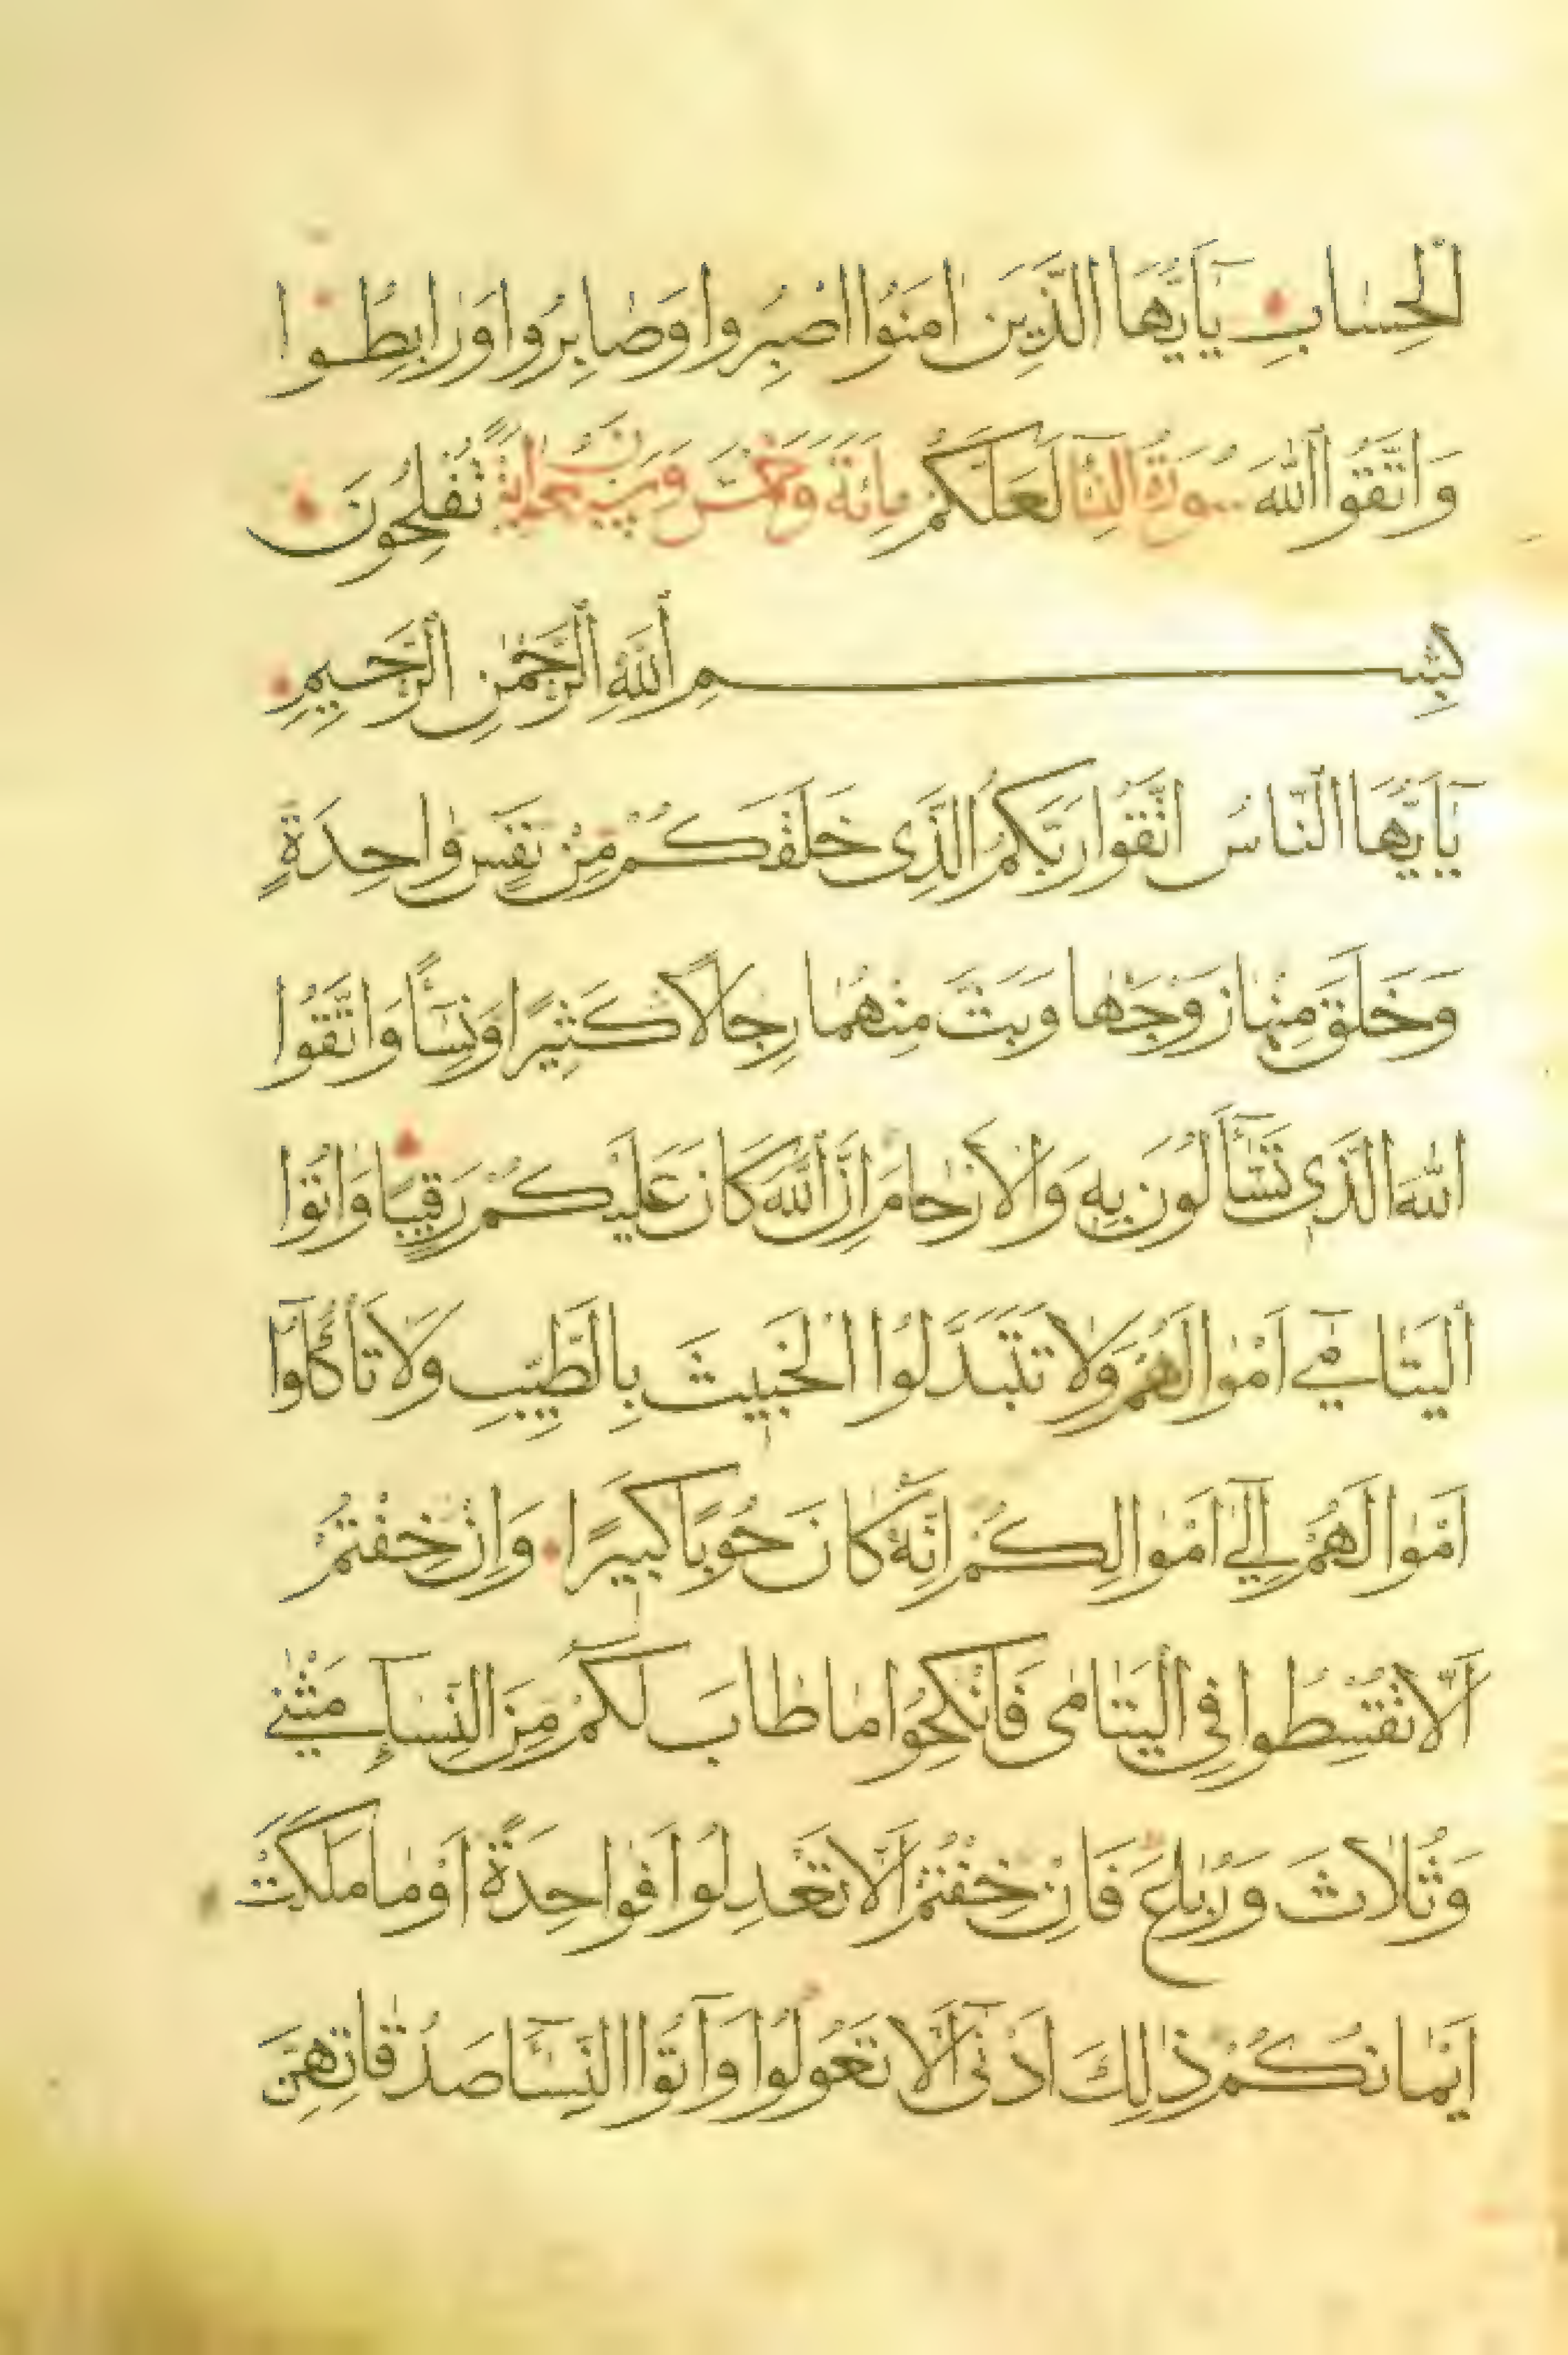 الْحِسَابِ يَا أَيُّهَا الَّذِينَ اٰمَنُوا اصْبِرُوا وَصَابِرُوا وَرَابِطُوا
وَاتَّقُوا اللّٰهَ سُورَةُ النِّسَا لَعَلَّكُمْ مِائَةٌ وَخَمْسٌ تُفْلِحُونَ
بِسْمِ اللّٰهِ الرَّحْمٰنِ الرَّحِيمِ
يَا أَيُّهَا النَّاسُ اتَّقُوا رَبَّكُمُ الَّذِى خَلَقَكُمْ مِنْ نَفْسٍ وَاحِدَةٍ
وَخَلَقَ مِنْهَا زَوْجَهَا وَبَثَّ مِنْهُمَا رِجَالًا كَثِيرًا وَنِسَآءً وَاتَّقُوا
اللّٰهَ الَّذِى تَسَّآءَلُونَ بِهِ وَالْاَرْحَامَ اِنَّ اللّٰهَ كَانَ عَلَيْكُمْ رَقِيبًا وَاٰتُوا
الْيَتَامٰى اَمْوَالَهُمْ وَلَا تَتَبَدَّلُوا الْخَبِيثَ بِالطَّيِّبِ وَلَا تَأْكُلُوٓا
اَمْوَالَهُمْ اِلٰٓى اَمْوَالِكُمْ اِنَّهُ كَانَ حُوبًا كَبِيرًا وَاِنْ خِفْتُمْ
اَلَّا تُقْسِطُوا فِى الْيَتَامٰى فَانْكِحُوا مَا طَابَ لَكُمْ مِنَ النِّسَآءِ مَثْنٰى
وَثُلَاثَ وَرُبَاعَ فَاِنْ خِفْتُمْ اَلَّا تَعْدِلُوا فَوَاحِدَةً اَوْ مَا مَلَكَتْ
اَيْمَانُكُمْ ذٰلِكَ اَدْنٰٓى اَلَّا تَعُولُوا وَاٰتُوا النِّسَآءَ صَدُقَاتِهِنَّ